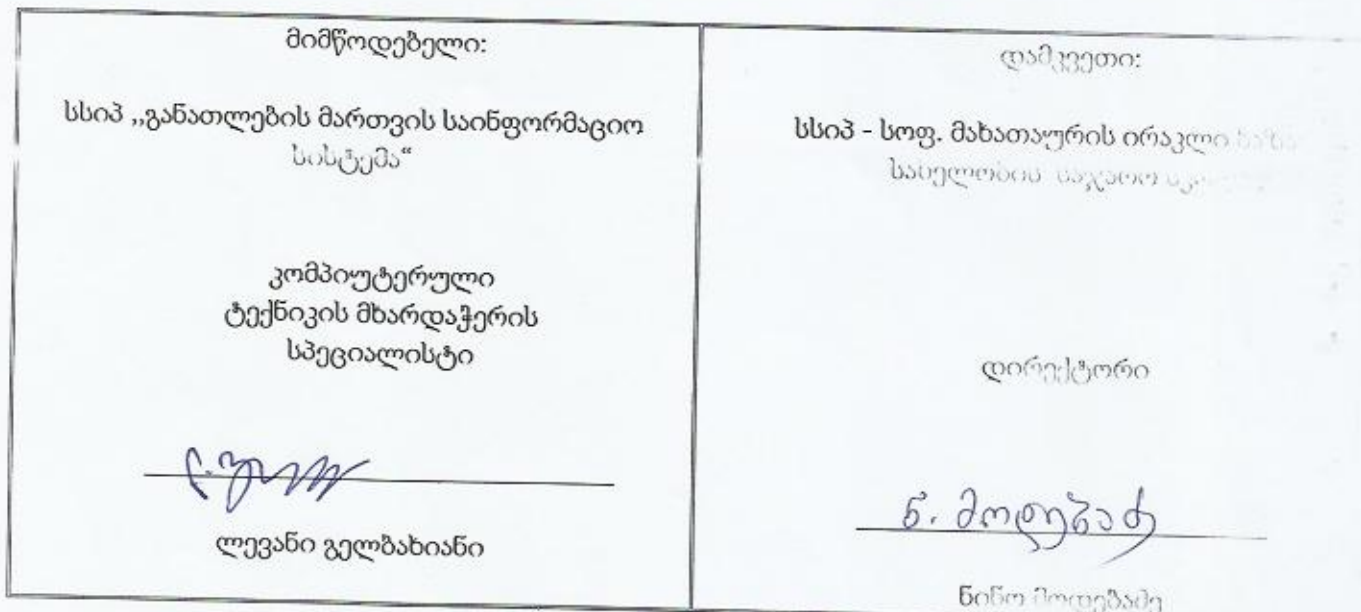 მიმწოდებელი:
სსიპ ,,განათლების მართვის საინფორმაციო
სისტემა“
კომპიუტერული
ტექნიკის მხარდაჭერის
სპეციალისტი
ლევანი გელბახიანი
დამკვეთი:
სსიპ - სოფ. მახათაურის ირაკლი
სახელობის საჯარო
დირექტორი
ნ. მოდებაძ
ნინო მოდებაძე